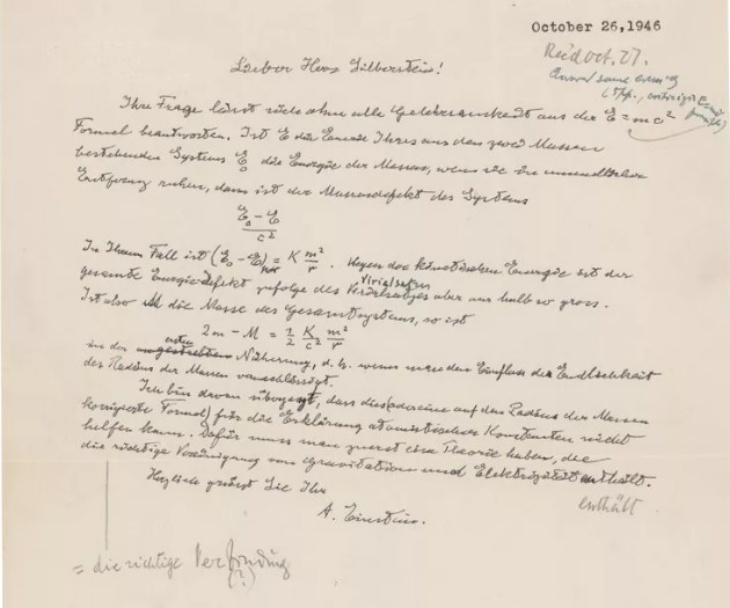 October 26, 1946
Recd oct. 27.
Lieber Herr Silberstein!
Ihre Frage lässt sich ohne alle Gelehrsamkeit aus der E = mc²
Formel beantworten. Ist E die Energie Ihres aus den zwei Massen
bestehenden Systems E₀ die Energie der Massen, wenn sie in unendlicher
Entfernung ruhen, dann ist der Massendefekt des Systems
(E₀ - E)/c²
In Ihrem Fall ist (E₀ - E) = K m²/r . Wegen der kinetischen Energie ist der
gesamte Energiedefekt zufolge des Virialsatzes aber nur halb so gross.
Ist also M die Masse des Gesamtsystems, so ist
2m - M = 1/2 K/c² m²/r
in der ersten Näherung, d. h. wenn man den Einfluss der Endlichkeit
des Radius der Massen vernachlässigt.
Ich bin davon überzeugt, dass diese (oder eine auf den Radius der Massen
korrigierte Formel) für die Erklärung atomistischer Konstanten nicht
helfen kann. Dafür muss man zuerst eine Theorie haben, die
die richtige Vereinigung von Gravitation und Elektrizität enthält.
enthält
Herzlich grüsst Sie Ihr
A. Einstein.
= die richtige Verbindung
(?)